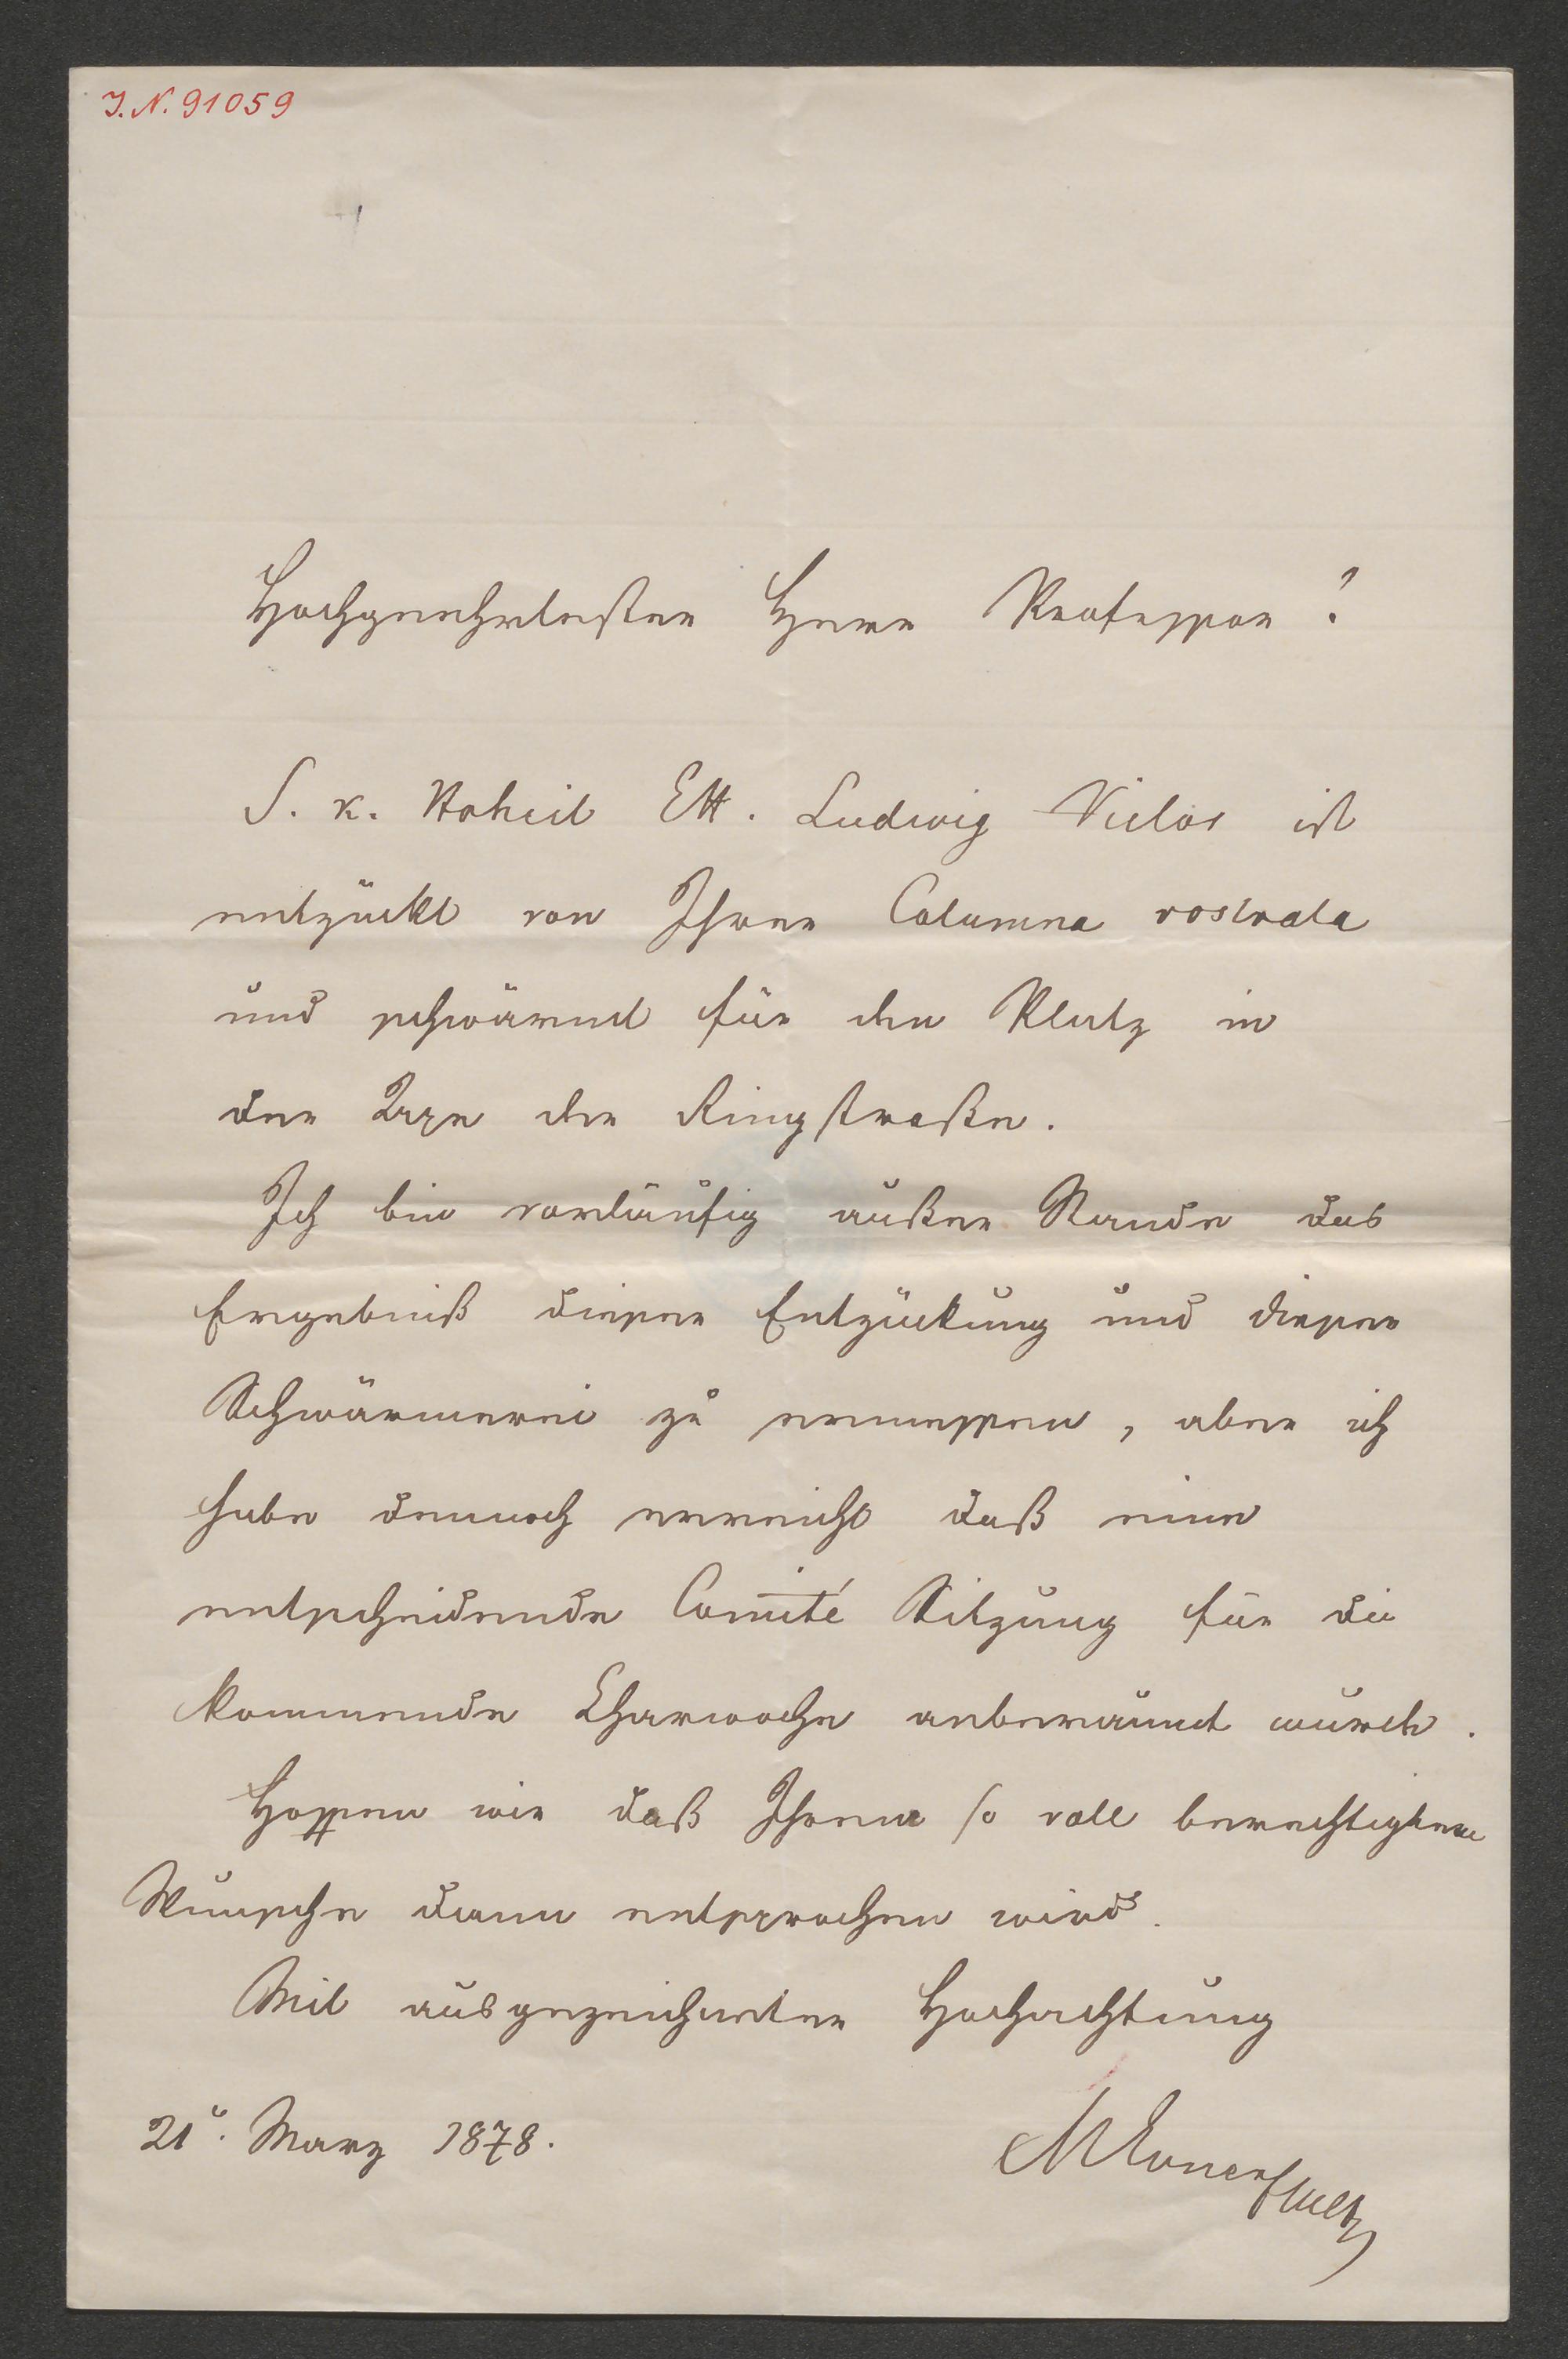 J.N. 91059
Hochgeehrtester Herr Professor!
S. k. Hoheit EH. Ludwig Victor ist
entzückt von Ihrer Columna rostrata
und schwärmt für den Platz in
der Axe der Ringstraße.
Ich bin vorläufig außer Stande das
Ergebniß dieser Entzückung und dieser
Schwärmerei zu ermessen, aber ich
habe dennoch erreicht daß eine
entscheidende Comité Sitzung für die
kommende Charwoche anberaumt wurde.
Hoffen wir daß Ihrem so voll berechtigtem
Wunsche dann entsprochen wird.
Mit ausgezeichneter Hochachtung
21. März 1878.